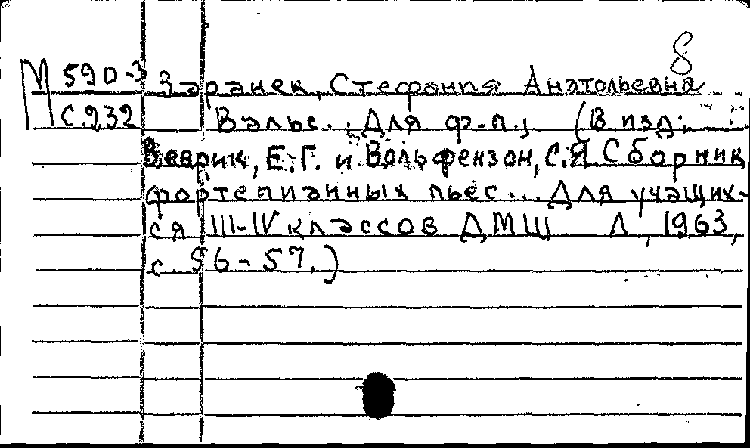 8
М 590-3 Заранек, Стефания Анатольевна
С.232 Вальс. Для ф.-п., (В изд:
Ваврик, Е.Г. и Вольфензон, С.Я. Сборник
фортепианных пьес... Для учащих-
ся III-IV классов ДМШ Л, 1963,
с. 56-57.)